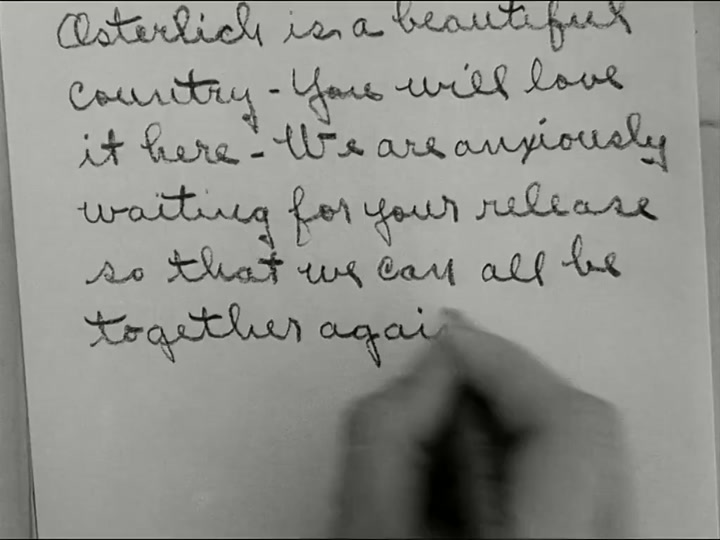 Osterlich is a beautiful
country - You will love
it here - We are anxiously
waiting for your release
so that we can all be
together agai